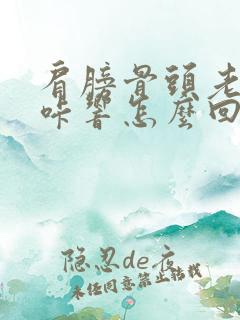 肩膀骨頭老
咔響怎麼回
隐忍de夜
未经同意禁止转载